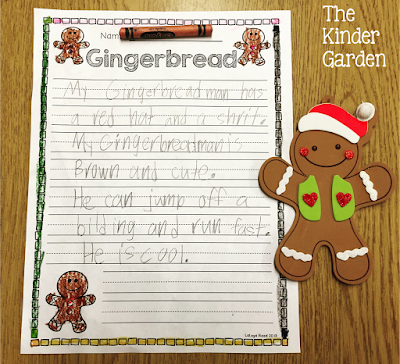 The
Kinder
Garden
Name
Gingerbread
My Gingerbreadman has
a red hat and a shrit.
My Gingerbreadman is
Brown and cute.
He can jump off a
bilding and run fast.
He is cool.